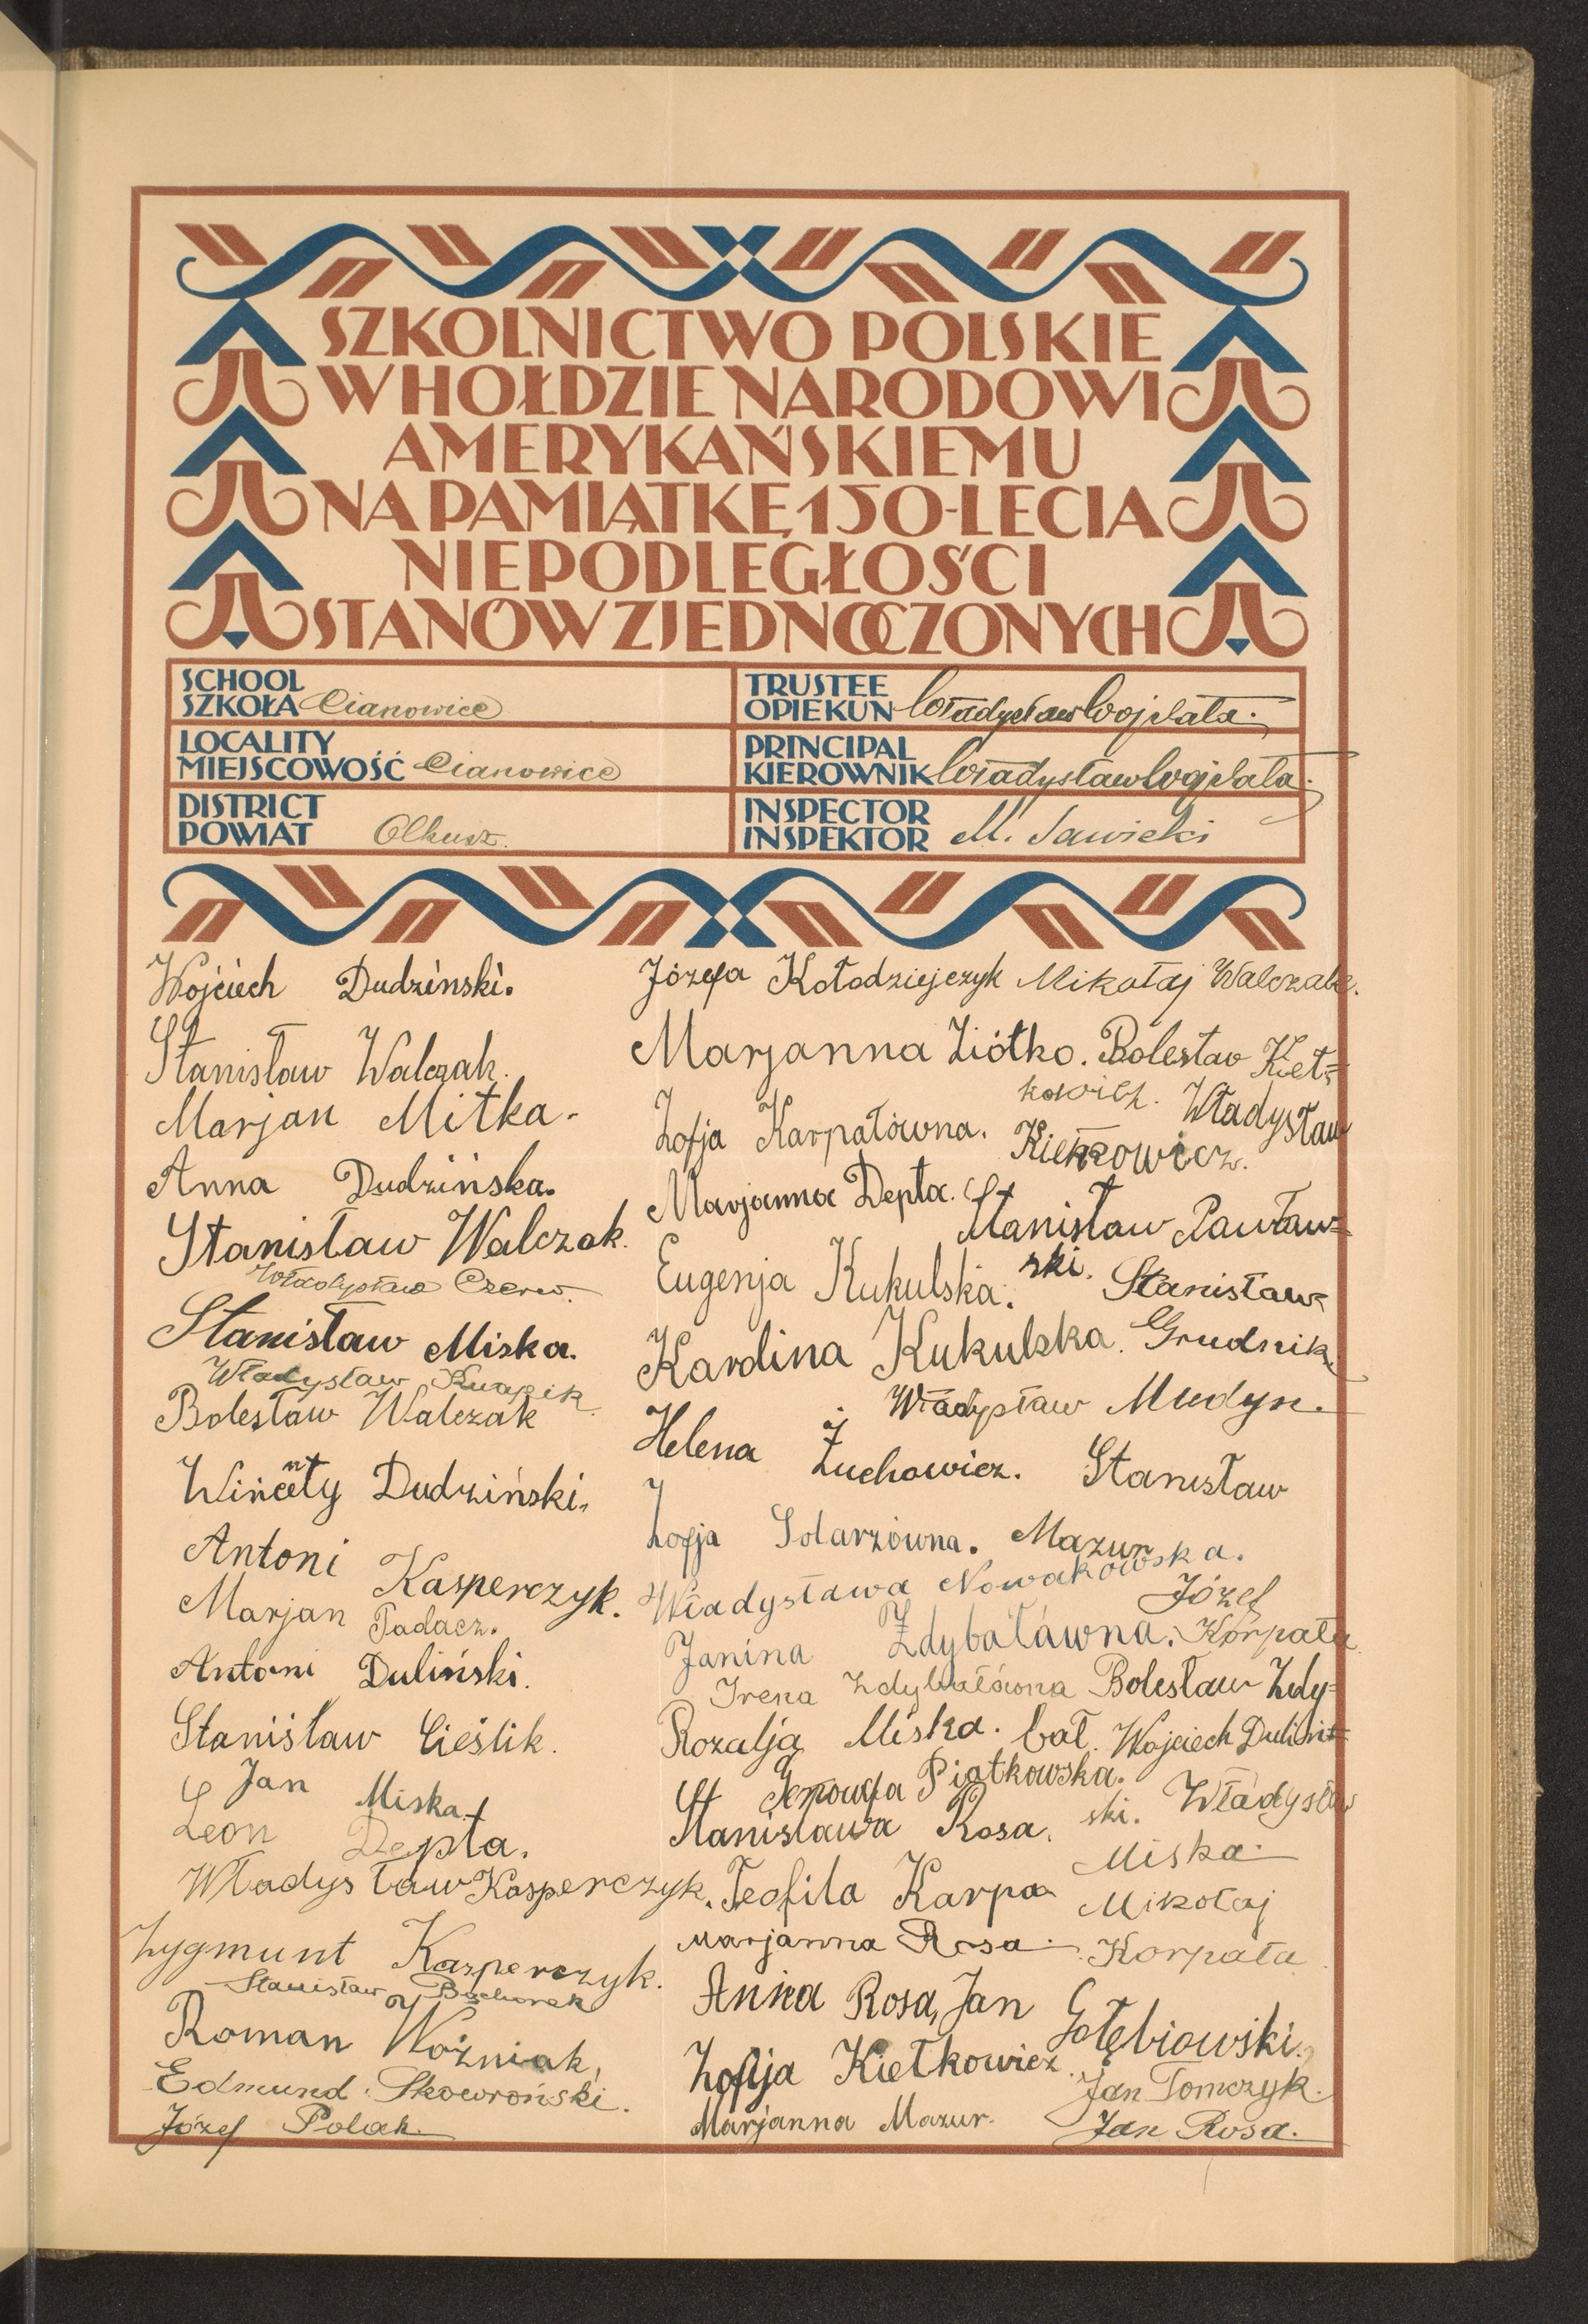 SZKOLNICTWO POLSKIE
W HOŁDZIE NARODOWI
AMERYKAŃSKIEMU
NA PAMIĄTKĘ 150-LECIA
NIEPODLEGŁOŚCI
STANÓW ZJEDNOCZONYCH
SCHOOL
SZKOŁA Cianowice
TRUSTEE
OPIEKUN Władysław Wojdała.
LOCALITY
MIEJSCOWOŚĆ Cianowice
PRINCIPAL
KIEROWNIK Władysław Wojdała.
DISTRICT
POWIAT Olkusz.
INSPECTOR
INSPEKTOR M. Sawicki
Wojciech Dudzinski.
Stanisław Walczak.
Marjan Mitka.
Anna Dudzińska.
Stanisław Walczak.
Władysław Czerw.
Stanisław Miska.
Władysław Knapik.
Bolesław Walczak
Wincenty Dudziński.
Antoni Kasperczyk.
Marjan Tadacz.
Antoni Duliński.
Stanisław Cieślik.
Jan Miska.
Leon Depta.
Władysław Kasperczyk.
Zygmunt Kasperczyk.
Stanisław Bochorek
Roman Woźniak,
Edmund Skowroński.
Józef Polak.
Józefa Kołodziejczyk
Marjanna Ziółko.
Zofja Karpałówna.
Marjanna Depta.
Eugenja Kukulska.
Karolina Kukulska.
Helena Żuchowicz.
Zofja Solarzówna.
Władysława Nowakowska.
Janina Zdybałówna.
Irena Zdybałówna
Rozalja Miska.
Genowefa Piątkowska.
Stanisława Rosa.
Teofila Karpa
Marjanna Rosa.
Anna Rosa, Jan
Gołębiowski.
Zofija Kiełkowicz.
Marjanna Mazur.
Mikołaj Walczak.
Bolesław Kieł=
kowicz. Władysław
Kiełkowicz.
Stanisław Pawław=
ski. Stanisław
Grudnik.
Władysław Mudyn.
Stanisław
Mazur
Józef
Korpała
Bolesław Zdy=
bał. Wojciech Duliń=
ski. Władysław
Miska.
Mikołaj
Korpała
Jan Tomczyk.
Jan Rosa.